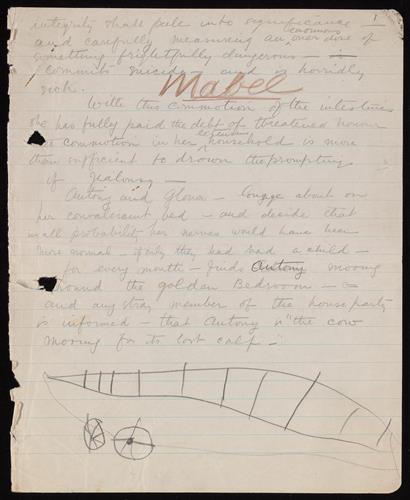 1
integrity shall pale into significance —
and carefully measuring an enormous over dose of
something frightfully dangerous — is
commits suicide — and is horridly
sick.
Mabel
With this commotion of the intestines
she has fully paid the debt of threatened honour
commotion in her extensive household is more
than sufficient to drown the prompting
of Jealousy —
Antony and Gloria — lounge about on
her convalescent bed — and decide that
in all probability her nerves would have been
more normal — if only they had had a child —
for every month — finds Antony mooing
around the golden Bedroom —
and any stray member of the house party
is informed — that Antony is "the cow
mooing for its lost calf —"